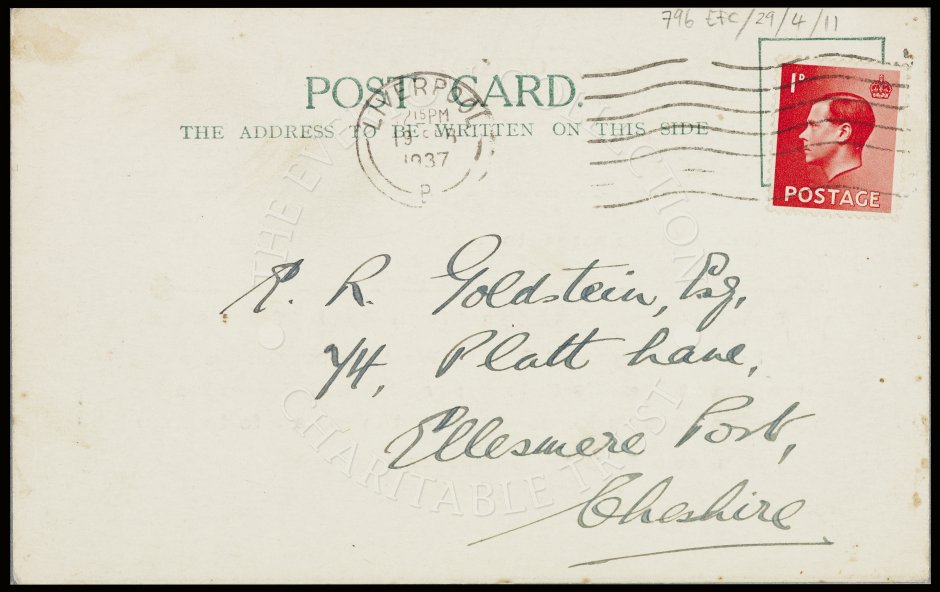 796 EFC/29/4/11
POST CARD.
THE ADDRESS TO BE WRITTEN ON THIS SIDE
LIVERPOOL
7 15 PM
1937
P
1D
POSTAGE
E. R. Goldstein, Esq,
74, Platt Lane,
Ellesmere Port,
Cheshire
THE EVERTON COLLECTION
CHARITABLE TRUST